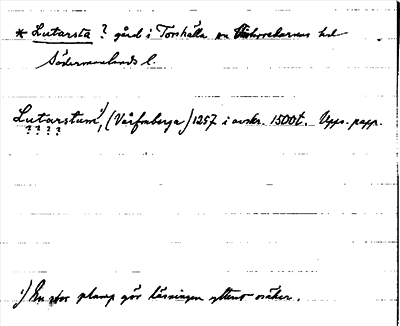 * Lutarsta ? gård i Torshälla sn hd
Södermanlands l.
Lutarstum¹⁾, (Vårfruberga) 1257 i avskr. 1500t. Upps. papp.
? ? ? ?
¹⁾ En stor plump gör läsningen ytterst osäker.